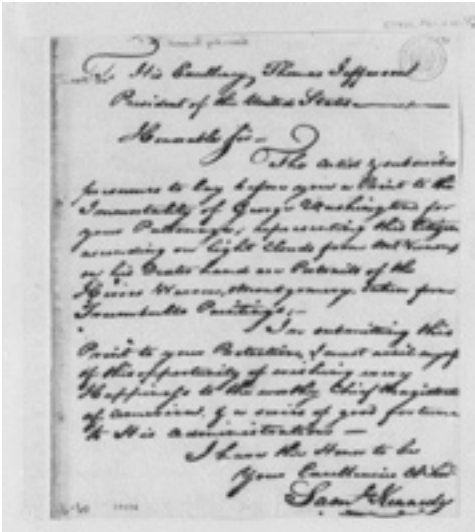 To His Excellency, Thomas Jefferson
President of the United States
Honorable Sir
The Artist & subscriber
presumes to lay before you a Print to the
Immortality of George Washington for
your Patronage, representing this Citizen
ascending on light Clouds from
on his are Portraits of the
Heroes Warren, Montgomery, taken from
Trumbulls Paintings,
In submitting this
Print to your Protection, I must avail myself
of this opportunity of wishing every
Happiness to the worthy Chief Magistrate
of America, & a series of good fortune
to His Administration
I have the Honor to be
Your Excellencies
Saml. Kennedy